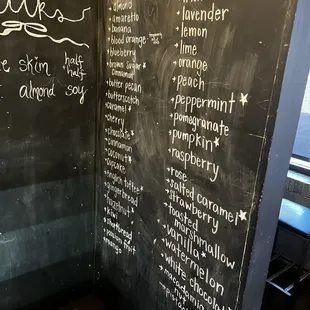 lks
skim half
half
almond soy
• almond
• amaretto
• banana
• blood orange
• blueberry
• brown sugar
cinnamon *
• butter pecan
• butterscotch
• caramel *
• cherry
• chocolate *
• cinnamon
• coconut *
• cupcake
• english toffee
• gingerbread
• hazelnut *
• kiwi
• passion fruit
• mango
• lavender
• lemon
• lime
• orange
• peach
• peppermint *
• pomegranate
• pumpkin *
• raspberry
• rose
• salted caramel *
• strawberry
• toasted
marshmallow
• vanilla *
• watermelon
• white chocolate
• macadamia nut